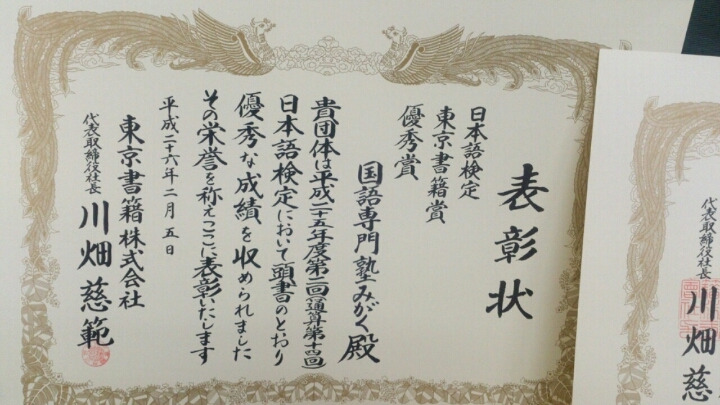 表彰状
日本語検定
東京書籍賞
優秀賞
国語専門塾みがく殿
貴団体は平成二十五年度第二回(通算第十四回)
日本語検定において頭書のとおり
優秀な成績を収められました
その栄誉を称えここに表彰いたします
平成二十六年二月五日
東京書籍株式会社
代表取締役社長 川畑慈範
代表取締役社長 川畑慈